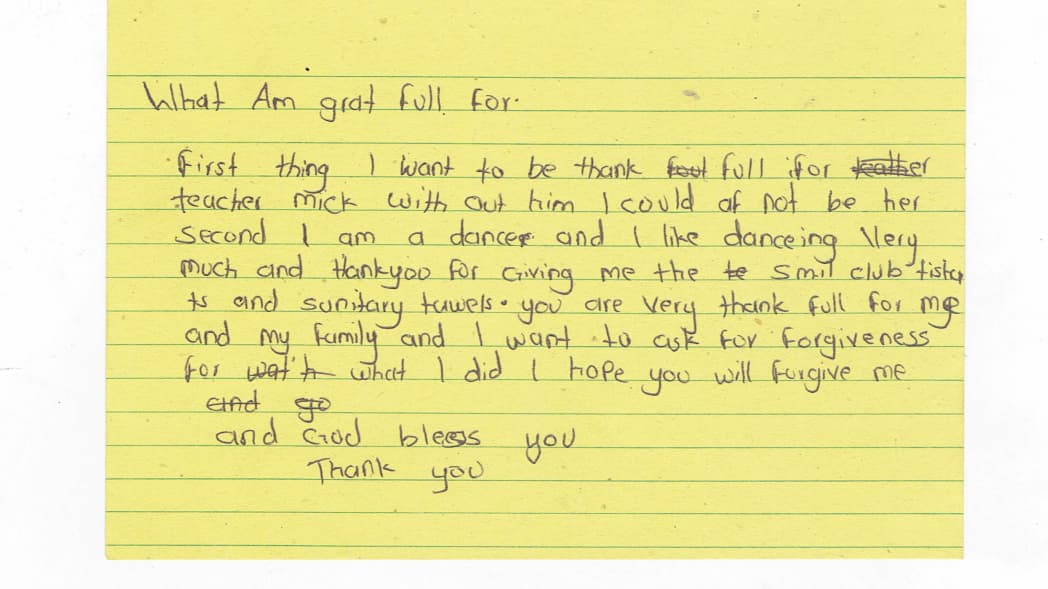 What Am grat full for.
First thing I want to be thank fout full for teather
teacher mick with out him I could of not be her
second I am a dancer and I like danceing Very
much and thankyoo for Giving me the te smil club tisher
ts and sanitary tawels. you are very thank full for me
and my family and I want to ask for forgiveness
for wat'h what I did I hope you will forgive me
and go
and God bless you
Thank you